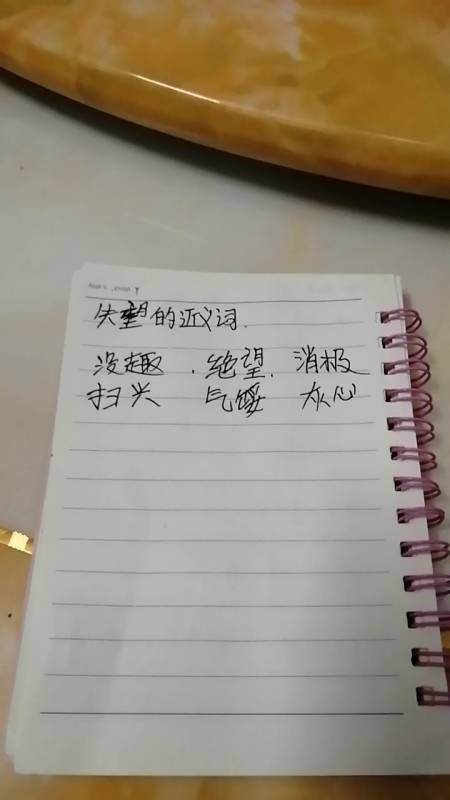 失望的近义词.
没趣 . 绝望. 消极
扫兴 气馁 灰心